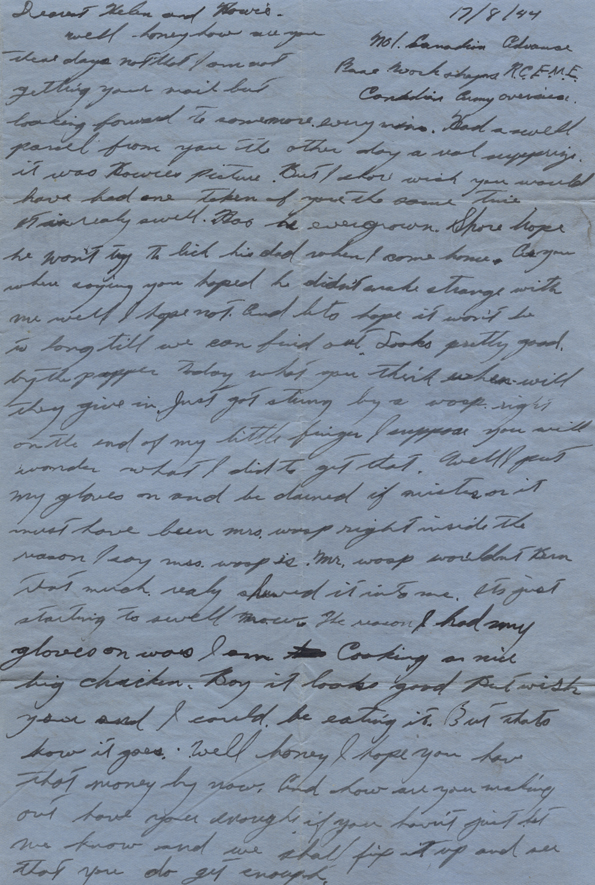 Dearest Helen and Howie.
17/8/44
well honey how are you
No 1. Canadian Advance
these days not that I am not
Base Workshops R.C.E.M.E.
getting your mail but
Canadian Army overseas.
looking forward to somemore every mins. Had a swell
parcel from you the other day a real supprize.
it was Howies picture. But I shore wish you would
have had one taken of you the same time
it is really swell. Has he evergrown. Shore hope
he won't try to lick his dad when I come home. As you
where saying you hoped he didn't make strange with
me well I hope not. And lets hope it won't be
to long till we can find out. Looks pretty good.
by the papper today what you think when will
they give in. Just got stung by a wosp. right
on the end of my little finger I suppose you will
wonder what I did to get that. Well I put
my gloves on and be darned if mister or it
must have been mrs. wosp right inside the
reason I say mrs. wosp is. Mr. wosp wouldnt Burn
that much. realy shoved it into me. Its just
starting to swell now. The reason I had my
gloves on was I am Cooking a nice
big chicken. Boy it looks good But wish
you and I could be eating it. But thats
how it goes. Well honey I hope you have
that money by now. And how are you making
out have you enough if you havn't just let
me know and we shall fix it up and see
that you do get enough.